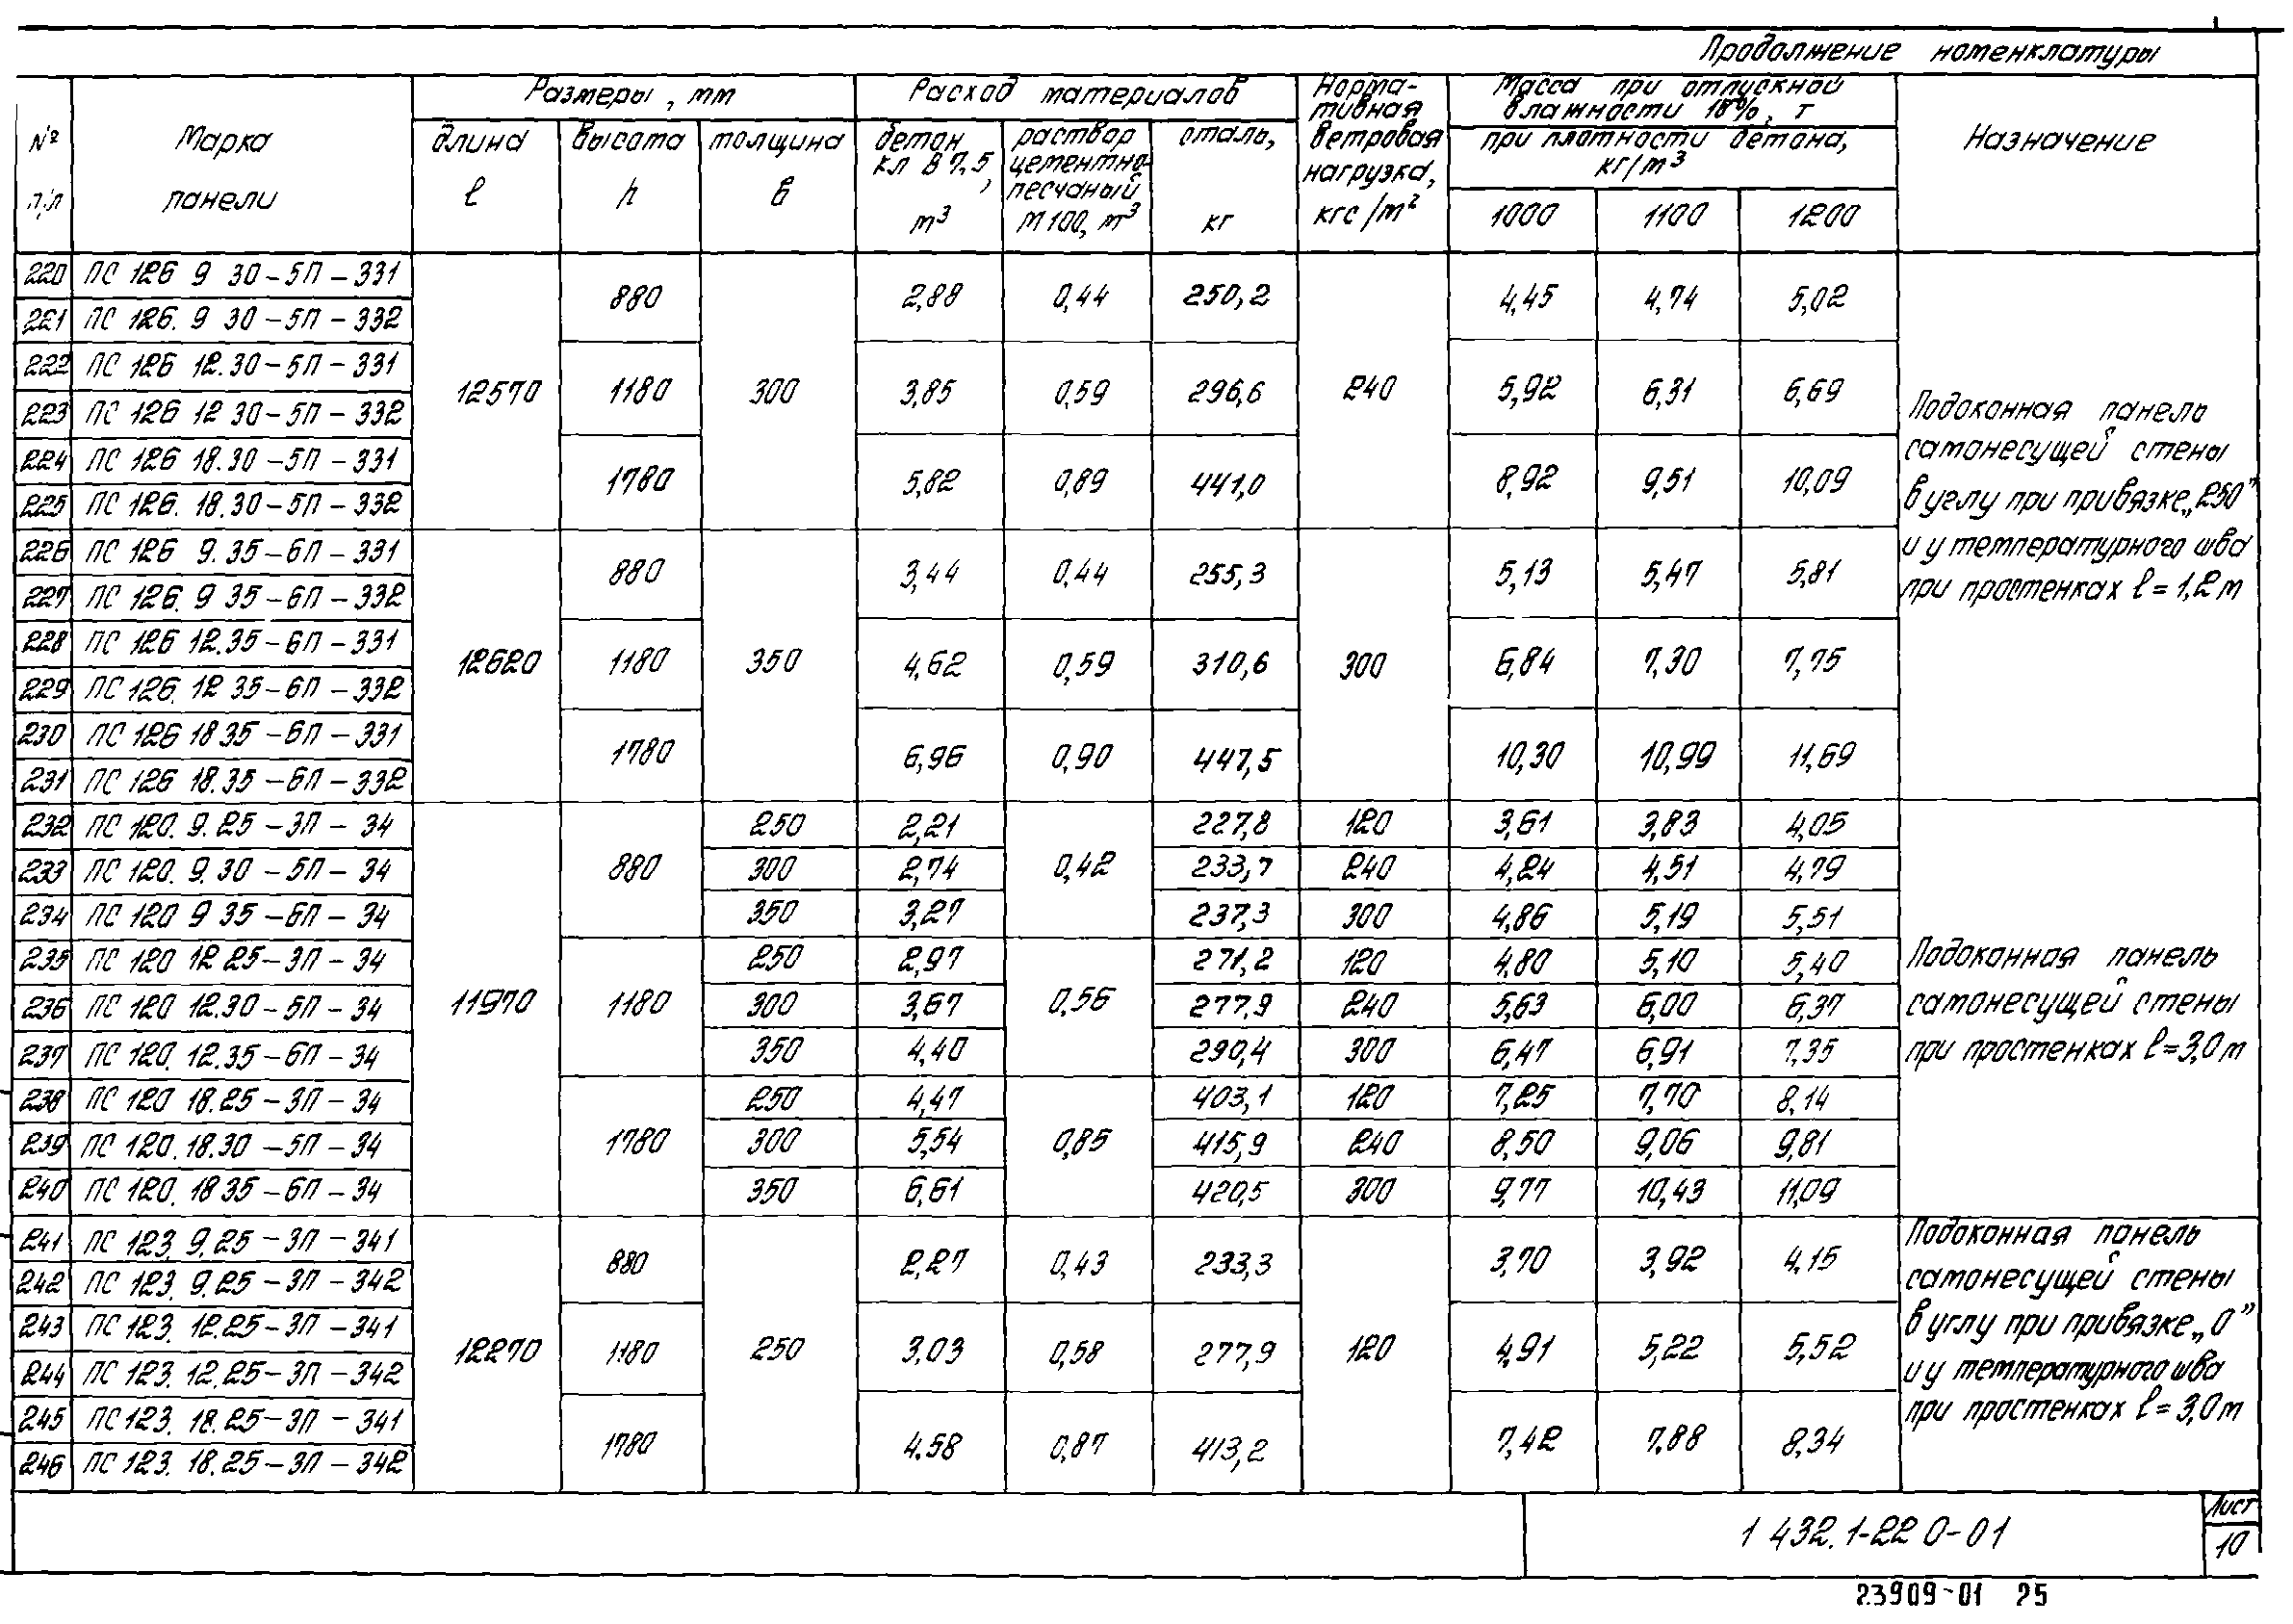 Продолжение номенклатуры
№ п/п Марка панели Размеры, мм Расход материалов Нормативная ветровая нагрузка, кгс/м² Масса при отпускной влажности 18%, т Назначение
длина ℓ высота h толщина в бетон кл В 7,5, м³ раствор цементно-песчаный М 100, м³ сталь, кг при плотности бетона, кг/м³
1000 1100 1200
220 ПС 126 9 30-5П-331 12570 880 300 2,88 0,44 250,2 240 4,45 4,74 5,02
221 ПС 126. 9 30-5П-332
222 ПС 126 12.30-5П-331 1180 3,85 0,59 296,6 5,92 6,31 6,69
223 ПС 126 12 30-5П-332
224 ПС 126 18.30-5П-331 1780 5,82 0,89 441,0 8,92 9,51 10,09
225 ПС 126. 18.30-5П-332
Подоконная панель
самонесущей стены
в углу при привязке „250”
и у температурного шва
при простенках ℓ=1,2м
226 ПС 126 9.35-6П-331 12620 880 350 3,44 0,44 255,3 300 5,13 5,47 5,81
227 ПС 126. 9 35-6П-332
228 ПС 126 12.35-6П-331 1180 4,62 0,59 310,6 6,84 7,30 7,75
229 ПС 126. 12 35-6П-332
230 ПС 126 18 35-6П-331 1780 6,96 0,90 447,5 10,30 10,99 11,69
231 ПС 126 18.35-6П-332
232 ПС 120. 9.25-3П-34 11970 880 250 2,21 0,42 227,8 120 3,61 3,83 4,05
233 ПС 120. 9.30-5П-34 300 2,74 233,7 240 4,24 4,51 4,79
234 ПС 120 9 35-6П-34 350 3,27 237,3 300 4,86 5,19 5,51
235 ПС 120 12 25-3П-34 1180 250 2,97 0,56 271,2 120 4,80 5,10 5,40
236 ПС 120 12.30-5П-34 300 3,67 277,9 240 5,63 6,00 6,37
237 ПС 120. 12.35-6П-34 350 4,40 290,4 300 6,47 6,91 7,35
238 ПС 120 18.25-3П-34 1780 250 4,47 0,85 403,1 120 7,25 7,70 8,14
239 ПС 120. 18.30-5П-34 300 5,54 415,9 240 8,50 9,06 9,81
240 ПС 120. 18 35-6П-34 350 6,61 420,5 300 9,77 10,43 11,09
Подоконная панель
самонесущей стены
при простенках ℓ=3,0м
241 ПС 123. 9.25-3П-341 12270 880 250 2,27 0,43 233,3 120 3,70 3,92 4,15
242 ПС 123. 9.25-3П-342
243 ПС 123. 12.25-3П-341 1180 3,03 0,58 277,9 4,91 5,22 5,52
244 ПС 123. 12.25-3П-342
245 ПС 123. 18.25-3П-341 1780 4.58 0,87 413,2 7,42 7,88 8,34
246 ПС 123. 18.25-3П-342
Подоконная панель
самонесущей стены
в углу при привязке „0”
и у температурного шва
при простенках ℓ=3,0м
1 432.1-22 0-01
Лист
10
23909-01 25